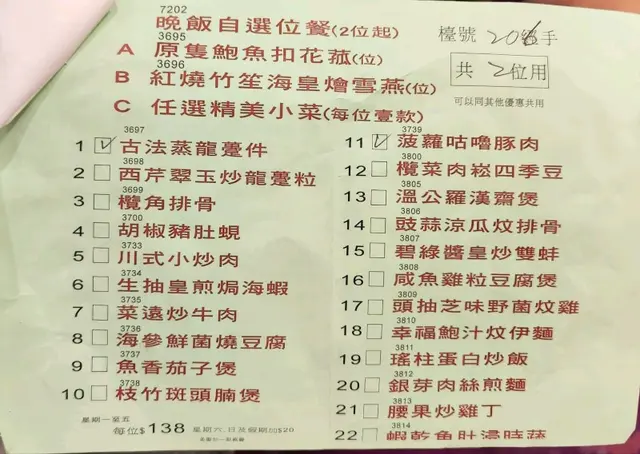 7202
晚飯自選位餐(2位起)
檯號 206 手
3695
A 原隻鮑魚扣花菰(位)
3696
B 紅燒竹笙海皇燴雪燕(位)
共 2位用
可以同其他優惠共用
C 任選精美小菜(每位壹款)
3697
1 古法蒸龍躉件
3698
2 西芹翠玉炒龍躉粒
3699
3 欖角排骨
3700
4 胡椒豬肚蜆
3733
5 川式小炒肉
3734
6 生抽皇煎焗海蝦
3735
7 菜遠炒牛肉
3736
8 海參鮮菌燒豆腐
3737
9 魚香茄子煲
3738
10 枝竹斑頭腩煲
3739
11 菠蘿咕嚕豚肉
3800
12 欖菜肉崧四季豆
3805
13 溫公羅漢齋煲
3806
14 豉蒜涼瓜炆排骨
3807
15 碧綠醬皇炒雙蚌
3808
16 咸魚雞粒豆腐煲
3809
17 頭抽芝味野菌炆雞
3810
18 幸福鮑汁炆伊麵
3811
19 瑤柱蛋白炒飯
3812
20 銀芽肉絲煎麵
3813
21 腰果炒雞丁
3814
22 蝦乾魚肚浸時蔬
星期一至五
每位$138 星期六,日及假期加$20